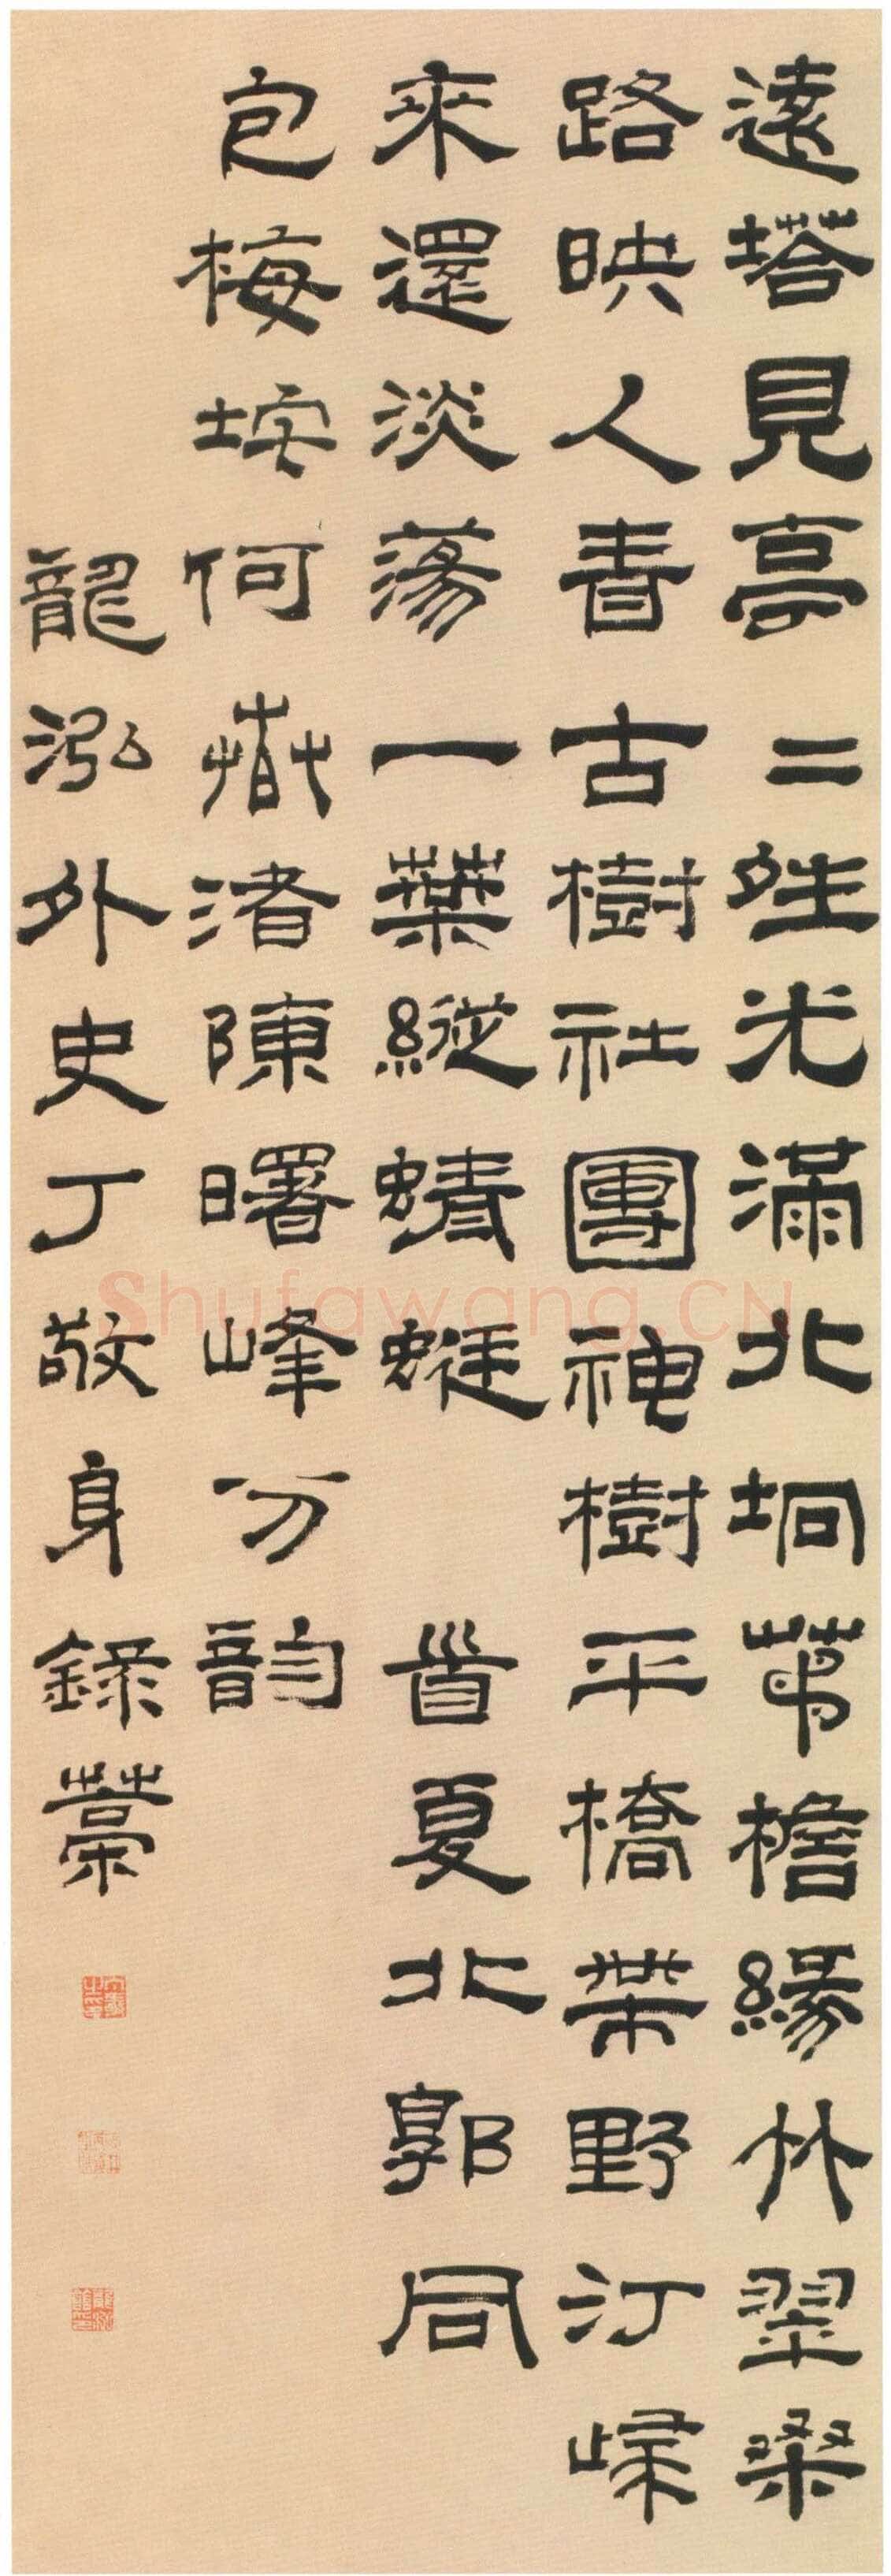 遠塔見亭二夝光滿北坰茅檐緣竹翠桑
路映人青古樹社團神樹平橋帶野汀歸
來還淡蕩一葉縱蜻蜓 首夏北郭同
包梅垞何春渚陳曙峰分韵
龍泓外史丁敬身錄藁
Shufawang.CN